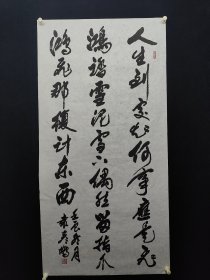 人生到處知何事應飛
鴻踏雪泥偶然留指爪
鴻飛那復計東西
壬辰冬月